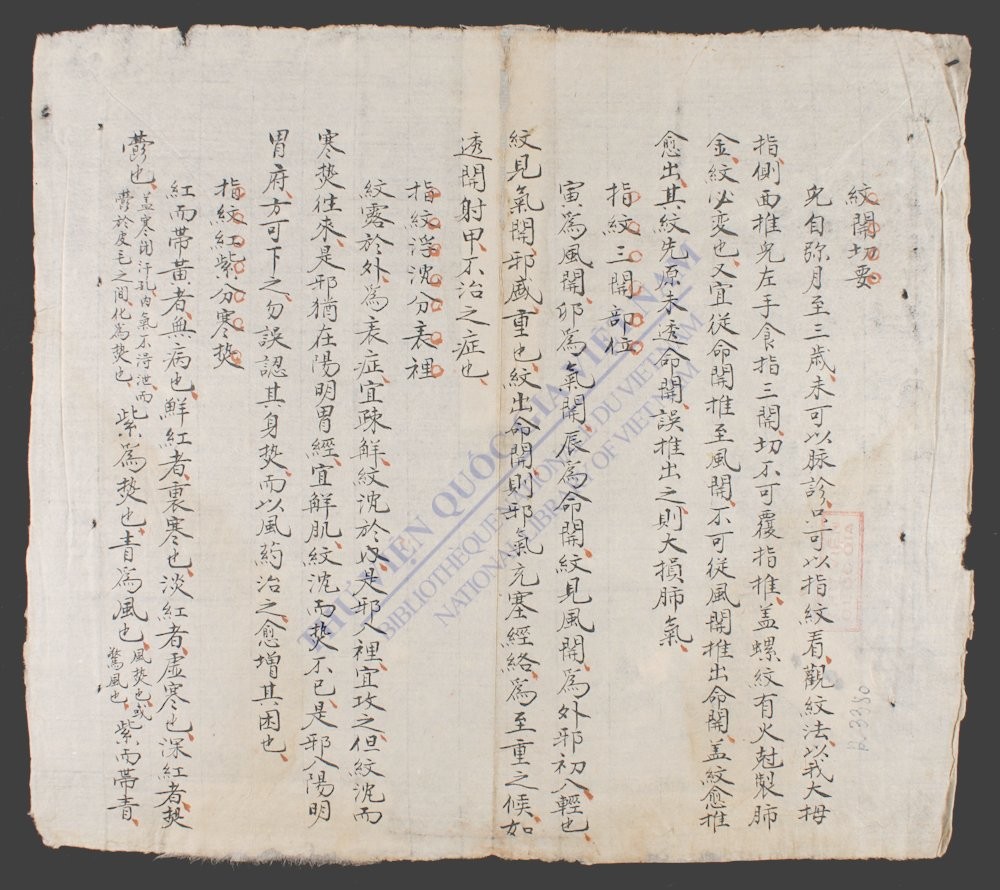 紋関切要
児自弥月至三歳、未可以脉診、只可以指紋看、觀紋法、以我大拇
指側面推児左手食指三関、切不可覆指推、盖螺紋有火尅製肺
金、紋必変也、又宜從命関推至風関、不可從風関推出命関、盖紋愈推
愈出、其紋先原未透命関、誤推出之、則大損肺氣、
指紋三関部位
寅爲風関、卯爲氣関、辰爲命関、紋見風関、爲外邪初入、輕也
紋見氣関、邪盛重也、紋出命関、則邪氣充塞經絡、爲至重之候、如
透関射甲、不治之症也、
指紋浮沈分表裡
紋露於外、爲表症、宜疎觧、紋沈於内、是邪入裡、宜攻之、但紋沈而
寒𤍠往來、是邪猶在陽明胃經、宜觧肌、紋沈而𤍠不已、是邪入陽明
胃府、方可下之、勿誤認其身𤍠而以風約治之、愈增其困也、
指紋紅紫分寒𤍠
紅而帶黃者、無病也、鮮紅者、裏寒也、淡紅者、虛寒也、深紅者𤍠
鬱也、盖寒闭汗孔内氣不淂泄而鬱於皮毛之間化爲𤍠也 紫爲𤍠也、青爲風也、風𤍠也或驚風也 紫而帶青、
THƯ VIỆN QUỐC GIA VIỆT NAM
BIBLIOTHÈQUE NATIONALE DU VIETNAM
NATIONAL LIBRARY OF VIETNAM
R.3380